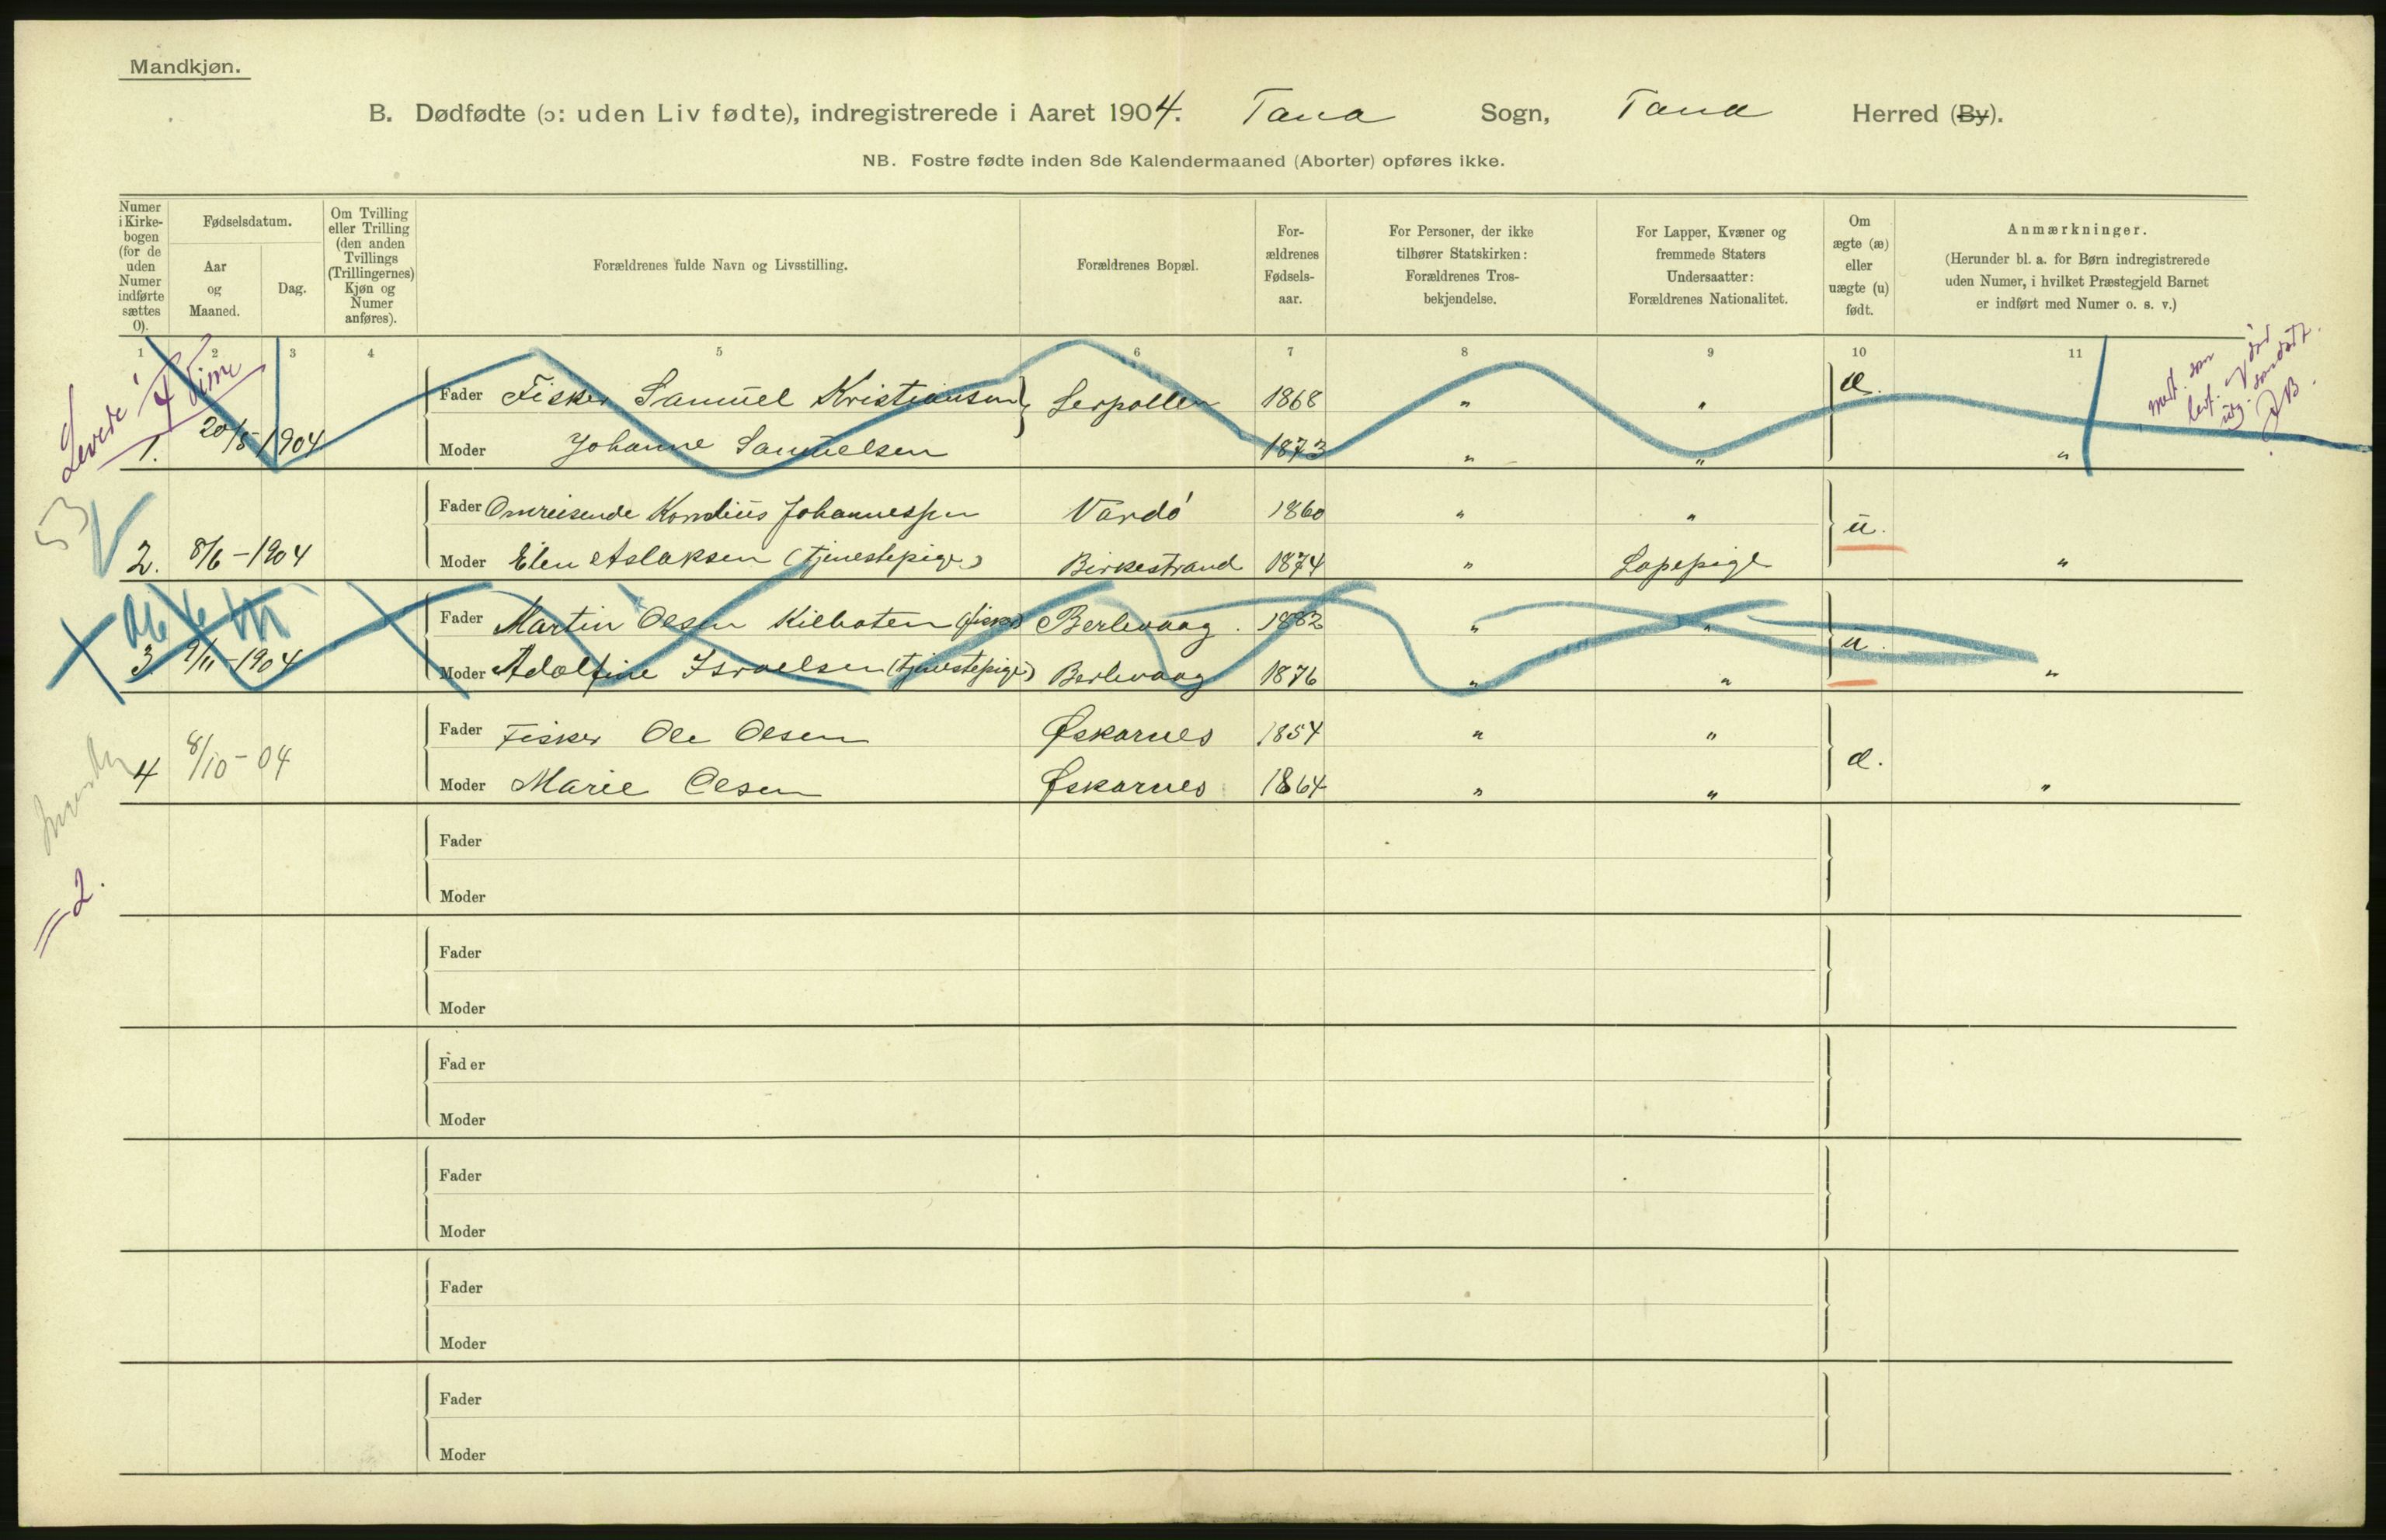 Mandkjøn.
B. Dødfødte (ɔ: uden Liv fødte), indregistrerede i Aaret 1904. Tana Sogn, Tana Herred (By).
NB. Fostre fødte inden 8de Kalendermaaned (Aborter) opføres ikke.
Numer i Kirkebogen (for de uden Numer indførte sættes 0).
Fødselsdatum.
Aar og Maaned.
Dag.
Om Tvilling eller Trilling (den anden Tvillings (Trillingernes) Kjøn og Numer anføres).
Forældrenes fulde Navn og Livsstilling.
Forældrenes Bopæl.
For-ældrenes Fødsels-aar.
For Personer, der ikke tilhører Statskirken: Forældrenes Tros-bekjendelse.
For Lapper, Kvæner og fremmede Staters Undersaatter: Forældrenes Nationalitet.
Om ægte (æ) eller uægte (u) født.
Anmærkninger.
(Herunder bl. a. for Børn indregistrerede uden Numer, i hvilket Præstegjeld Barnet er indført med Numer o. s. v.)
1 2 3 4 5 6 7 8 9 10 11
Levede 4 Time
Fader Fisker Samuel Kristiansen } Lerpollen 1868 " " æ.
1. 20/5 1904 Moder Johanne Samuelsen 1873 " " "
53
Fader Omreisende Kornelius Johannessen Vardö 1860 " " u.
2. 8/6 - 1904 Moder Elen Aslaksen (tjenestepige) Birkestrand 1874 " Lapepige "
Fader Martin Olsen Kilboten (fisker) Berlevaag. 1882 " " u.
3. 9/11 - 1904 Moder Adolfine Israelsen (tjenestepige) Berlevaag 1876 " " "
Fader Fisker Ole Olsen Øskarnes 1854 " " æ.
4 8/10 - 04 Moder Marie Olsen Øskarnes 1864 " " "
= 2.
Fader
Moder
Fader
Moder
Fader
Moder
Fader
Moder
Fader
Moder
Fader
Moder